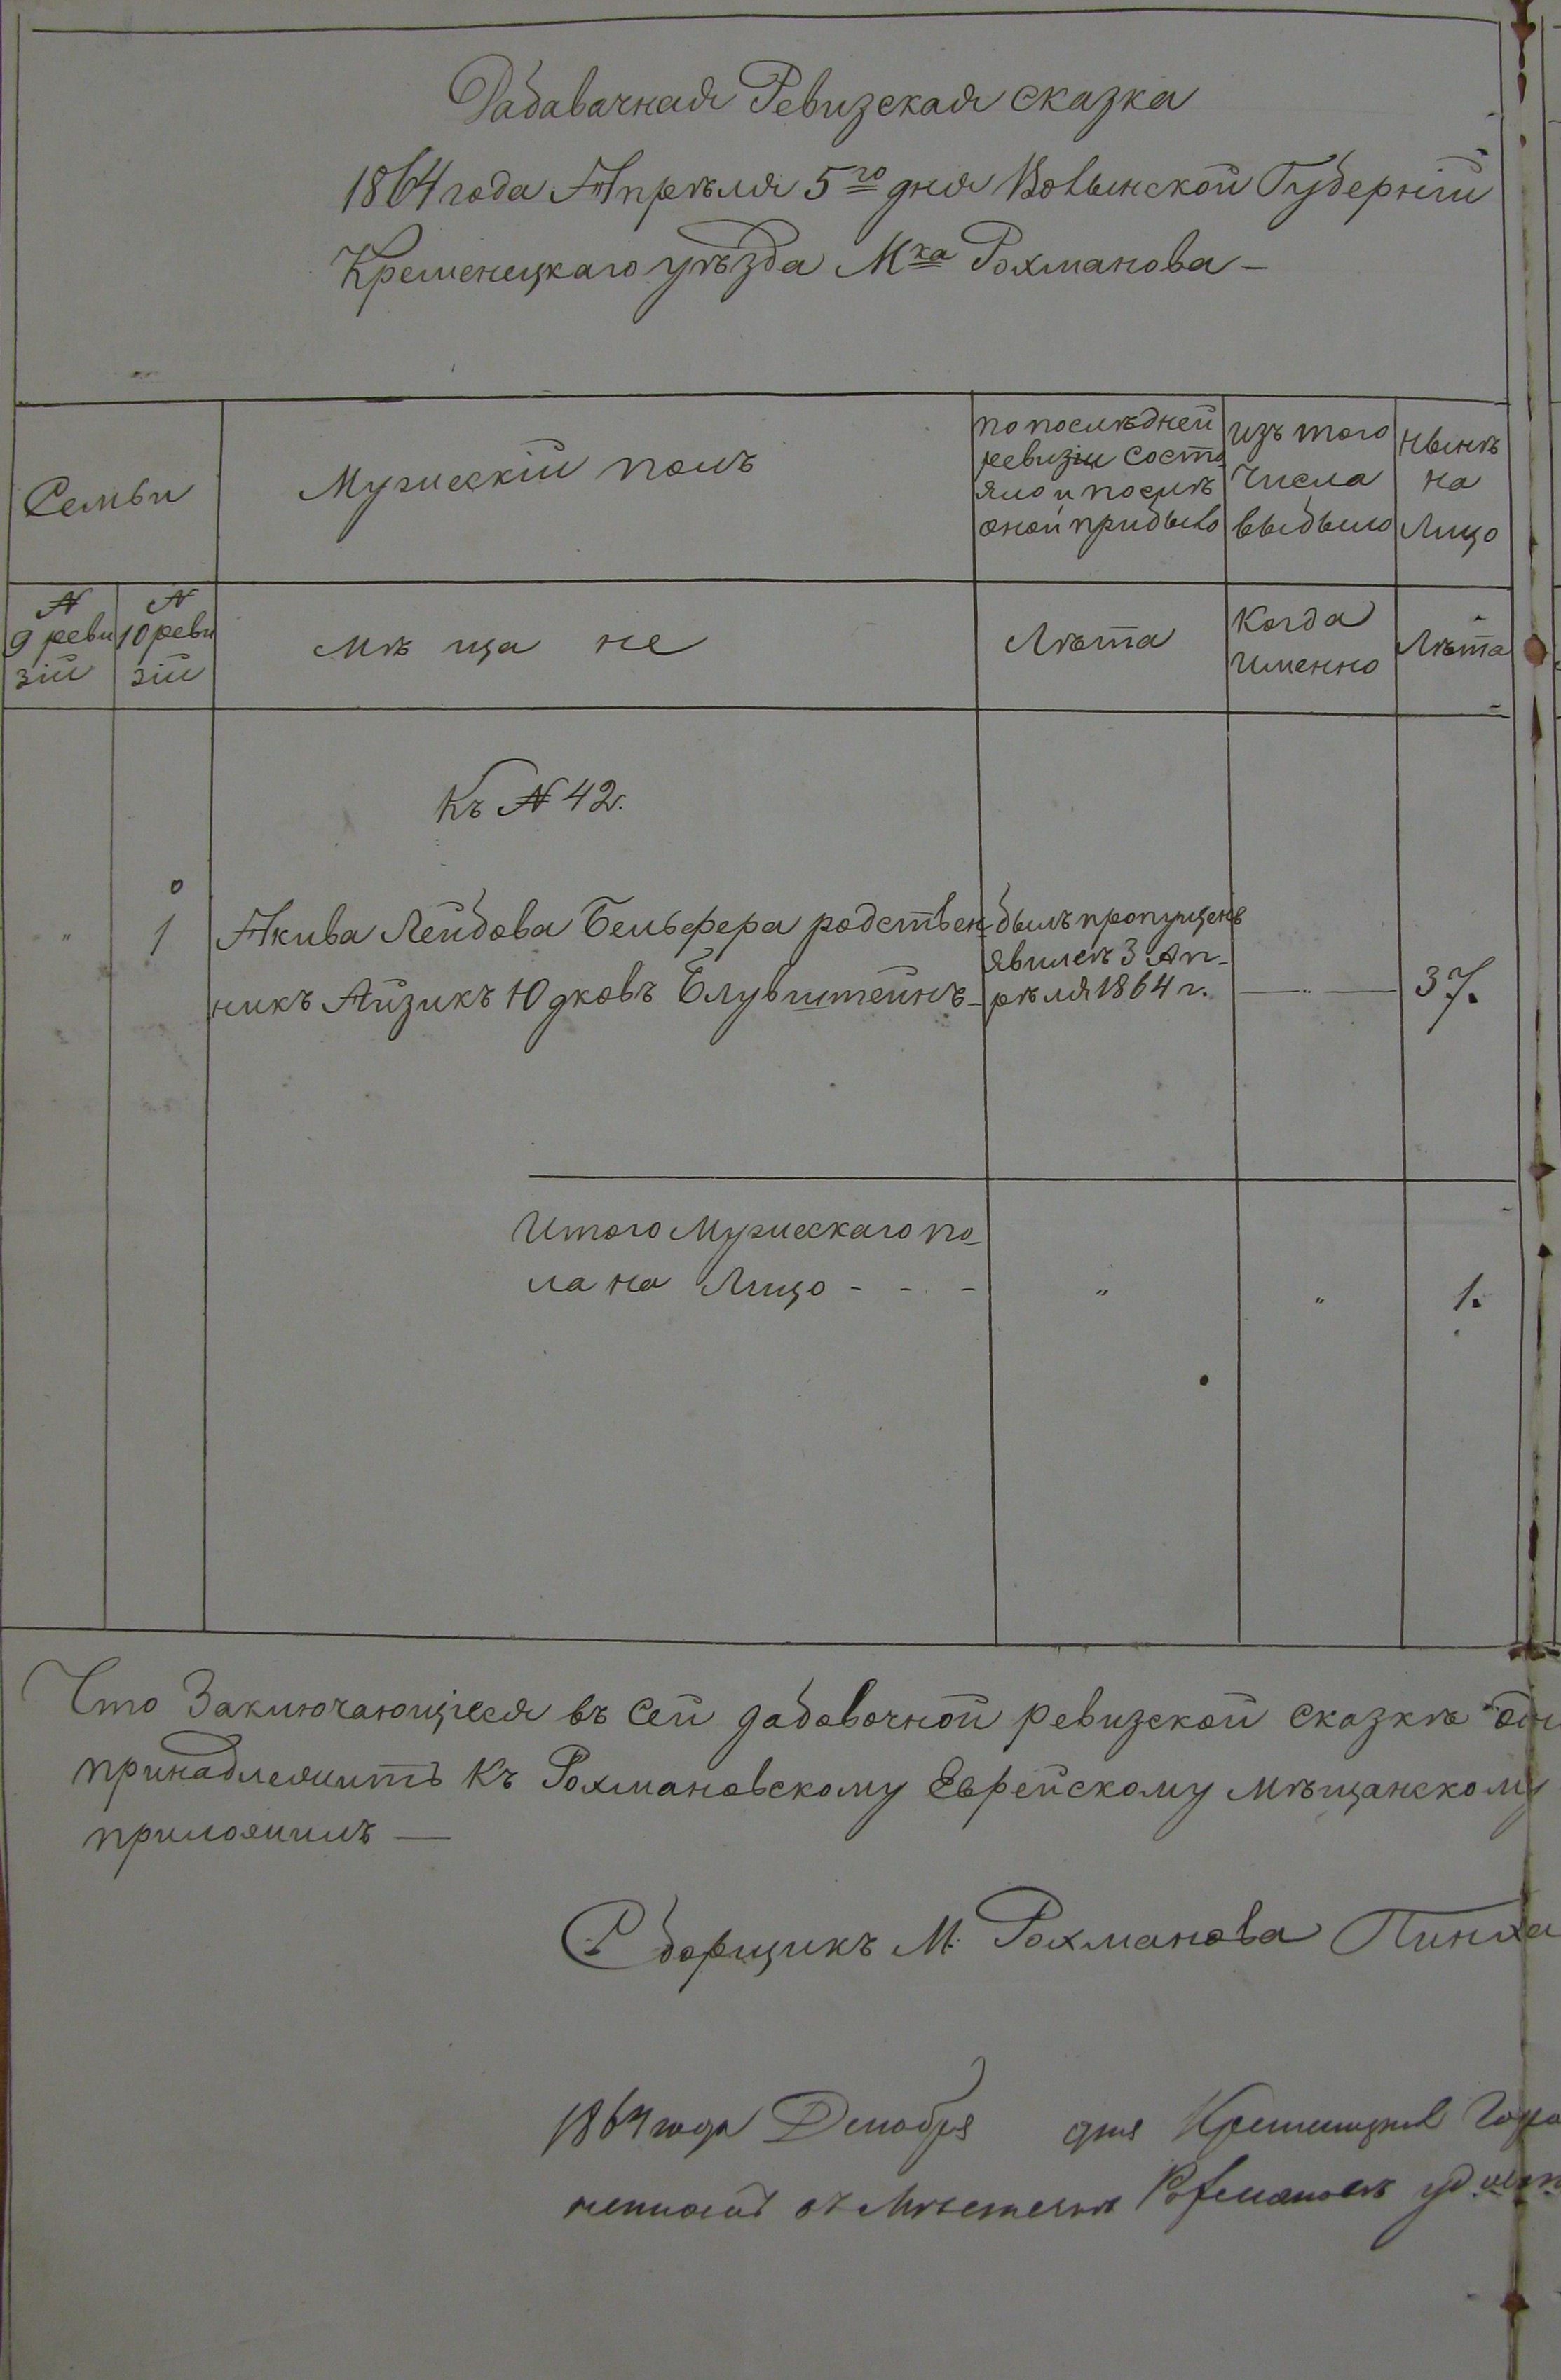 Дабавачная Ревизская сказка
1864 года Апрѣля 5го дня Волынской Губерніи
Кременецкаго уѣзда Мка Рохманова —
Семьи
Мужескій полъ
по послѣдней
ревизіи состо
яло и послѣ
оной прибыло
изъ того
числа
выбыло
нынѣ
на
Лицо
N
9 реви
зіи
N
10 реви
зіи
мѣ ща не
Лѣта
Когда
именно
Лѣта
Къ N 42.
" 1 Акива Лейбова Бельфера родствен
никъ Айзикъ Юдковъ Блувштейнъ —
былъ пропущенъ
явился 3 Ап-
рѣля 1864 г.
— " —
37.
Итого Мужескаго по-
ла на Лицо - - -
" " 1.
Что Заключающіеся въ сей дабовочной ревизской сказкѣ
принадлежитъ Къ Рохмановскому Еврейскому мѣщанскому
приложилъ —
Сборщикъ М. Рохманова Пинха
1864 года Декабря дня